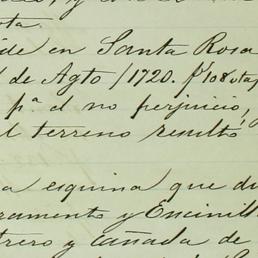 ota.
ide en Santa Rosa
de Agto/1720. f/108 vta/
pª el no perjuicio,
l terreno resultó
a esquina que di
ramento y Encinill
trero y cañada de